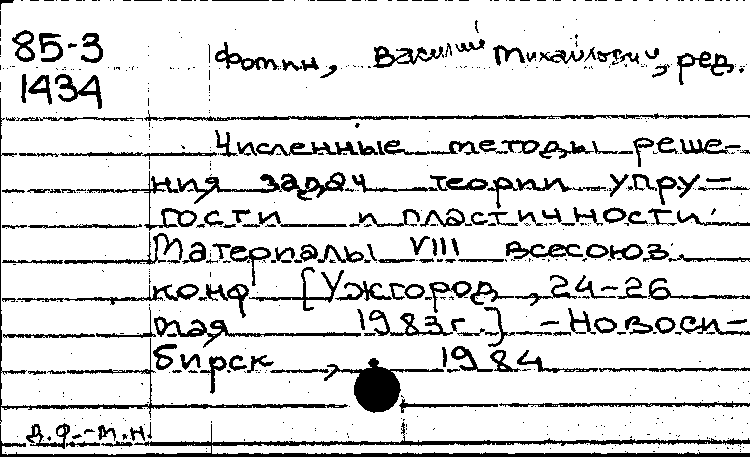 85-3
1434
Фотин, Василий Михайлович, ред.
Численные методы реше-
ния задач теории упру-
гости и пластичности.
Материалы VIII всесоюз.
конф [Ужгород, 24-26
мая 1983г.] -Новоси-
бирск, 1984